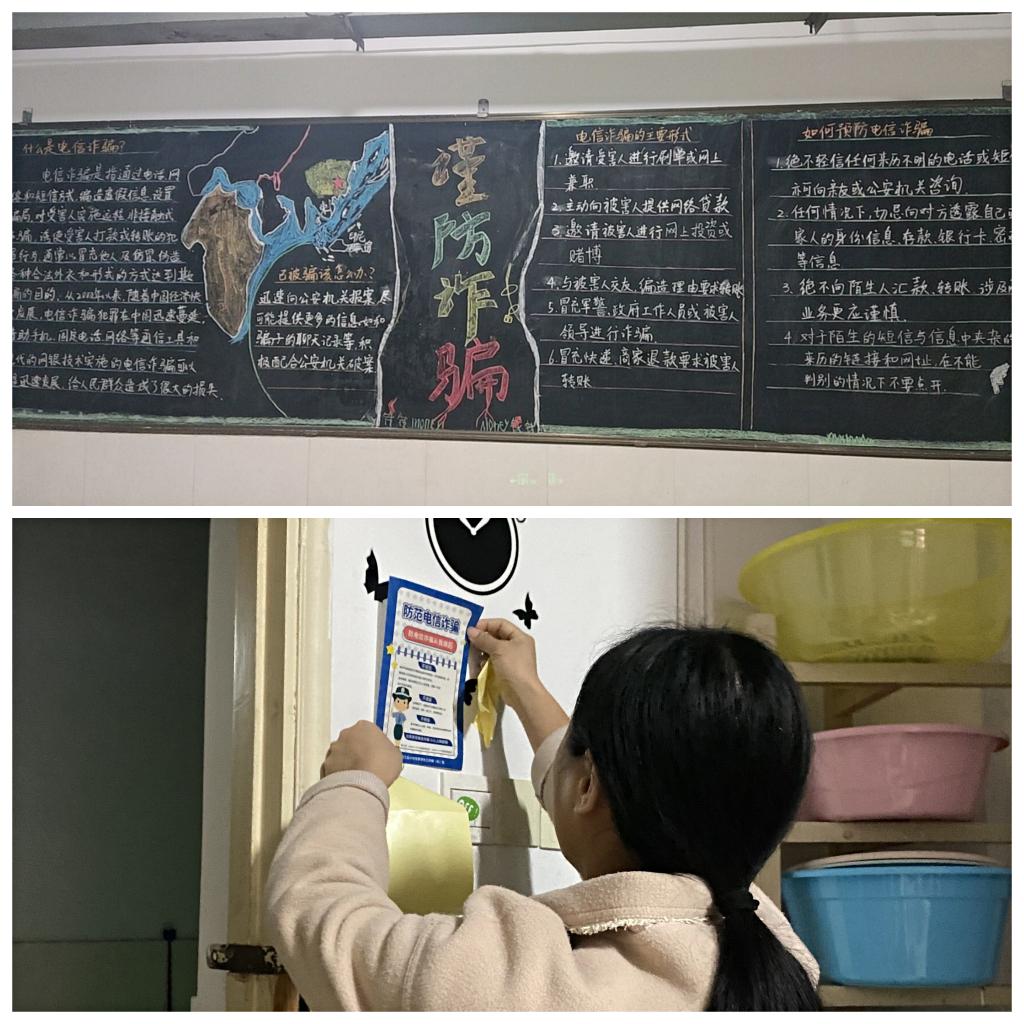 什么是电信诈骗?
电信诈骗是指通过电话、网
络和短信方式,编造虚假信息,设置
骗局,对受害人实施远程、非接触式
诈骗,诱使受害人打款或转账的犯
以冒充他人及仿冒、伪造
各种合法外衣和形式的方式达到欺
骗的目的,从2000年以来,随着中国经济快
发展,电信诈骗犯罪在中国迅速蔓延,
借助手机、固定电话、网络等通信工具和
现代的网银技术实施的电信诈骗可以
迅速发展,给人民群众造成了很大的损失.
已被骗该怎么办?
迅速向公安机关报案,尽
可能提供更多的信息,如和
骗子的聊天记录等,积
极配合公安机关破案
谨
防
诈
骗
money
Money
电信诈骗的主要形式
1.邀请受害人进行刷单或网上
兼职
2.主动向被害人提供网络贷款
3.邀请被害人进行网上投资或
赌博
4.与被害人交友,编造理由要求转账
5.冒充军警,政府工作人员或被害人
领导进行诈骗
6.冒充快递,商家退款要求被害人
转账
如何预防电信诈骗
1.绝不轻信任何来历不明的电话或短
亦可向亲友或公安机关咨询.
2.任何情况下,切忌向对方透露自己或
家人的身份信息、存款、银行卡、密
等信息
3.绝不向陌生人汇款、转账,涉及
业务更应谨慎.
4.对于陌生的短信与信息中夹杂的
来历的链接和网址,在不能
判别的情况下不要点开.
防范电信诈骗
OFF